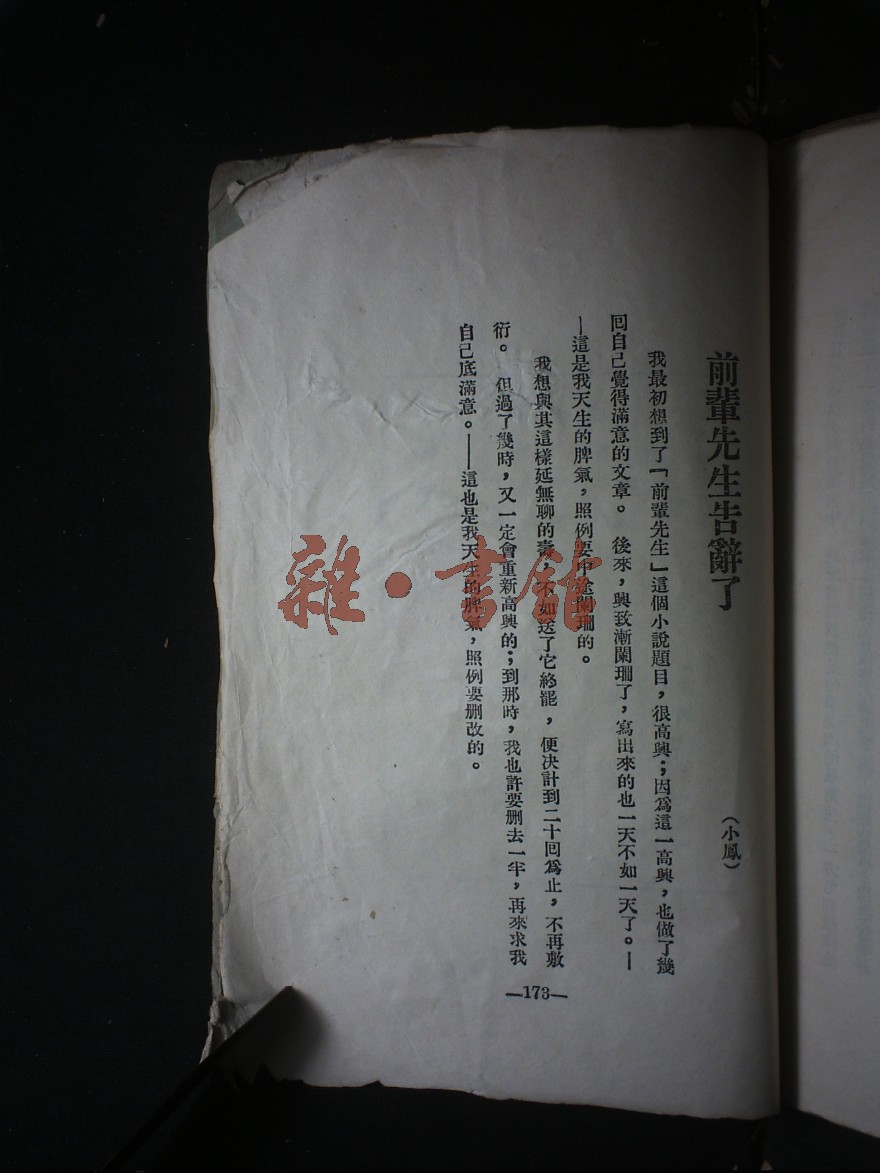 前輩先生告辭了
（小鳳）
我最初想到了「前輩先生」這個小說題目，很高興；因爲這一高興，也做了幾
回自己覺得滿意的文章。　後來，興致漸闌珊了，寫出來的也一天不如一天了。—
—這是我天生的脾氣，照例要中途闌珊的。
我想與其這樣延無聊的壽，不如送了它終罷，便決計到二十回爲止，不再敷
衍。　但過了幾時，又一定會重新高興的；到那時，我也許要刪去一半，再來求我
自己底滿意。——這也是我天生的脾氣，照例要刪改的。
—173—
雜·書館